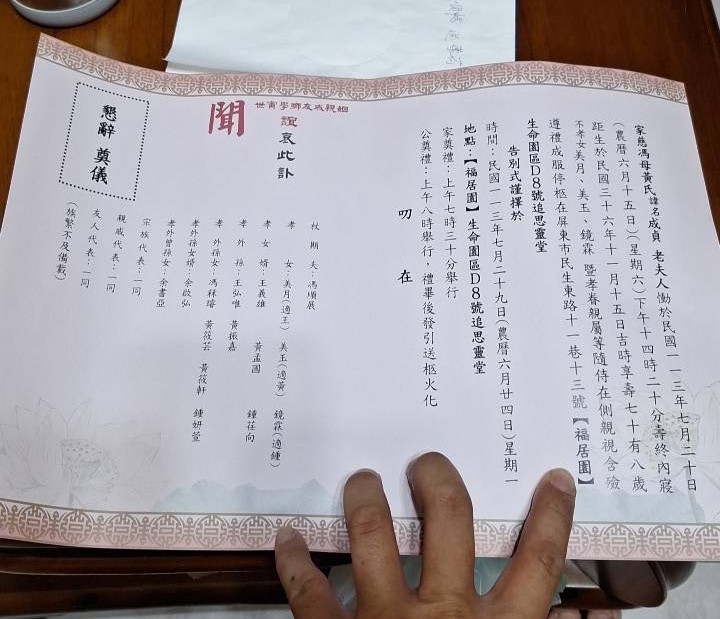 家慈馮母黃氏諱名成貞 老夫人慟於民國一一三年七月二十日
(農曆六月十五日)(星期六)下午十四時二十分壽終內寢
距生於民國三十六年十一月十五日吉時享壽七十有八歲
不孝女美月、美玉、鏡霖 暨孝眷親屬等隨侍在側親視含殮
遵禮成服停柩在屏東市民生東路十一巷十三號【福居園】
生命園區D8號追思靈堂
告別式謹擇於
時間:民國一一三年七月二十九日(農曆六月廿四日)星期一
地點:【福居園】生命園區D8號追思靈堂
家奠禮:上午七時三十分舉行
公奠禮:上午八時舉行,禮畢後發引送柩火化
叨 在
姻親戚友鄉學寅世
誼哀此訃
聞
杖期夫:馮順展
孝 女:美月(適王) 美玉(適黃) 鏡霖(適鍾)
孝女婿:王義雄 黃孟國
孝外孫:王弘唯 黃振嘉 鍾荏向
孝外孫女:馮秝璿 黃筱芸 黃筱軒 鍾妍萱
孝外孫女婿:余啟弘
孝外曾孫女:余書亞
宗族代表:一同
親戚代表:一同
友人代表:一同
(族繁不及備載)
懇辭 奠儀